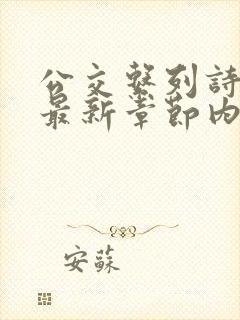 公交繫列詩
最新章節內
安蘇